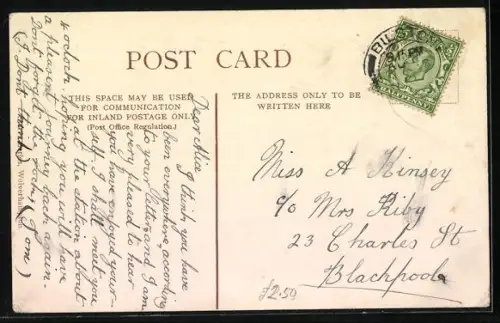 POST CARD
THIS SPACE MAY BE USED
FOR COMMUNICATION
FOR INLAND POSTAGE ONLY
(Post Office Regulation.)
THE ADDRESS ONLY TO BE
WRITTEN HERE
BILSTON
HALFPENNY
Dear Alice
I think you have
been everywhere according
to your letters and I am
very pleased to hear
you have enjoyed your-
self. I shall meet you
at the station about
4 oclock hoping you will have
a pleasent journey back again.
Dont forget the rock. (Tom)
(I Dont think)
Wolverhampton.
Miss A Kinsey
c/o Mrs Kiby
23 Charles St
Blackpool
£2.50